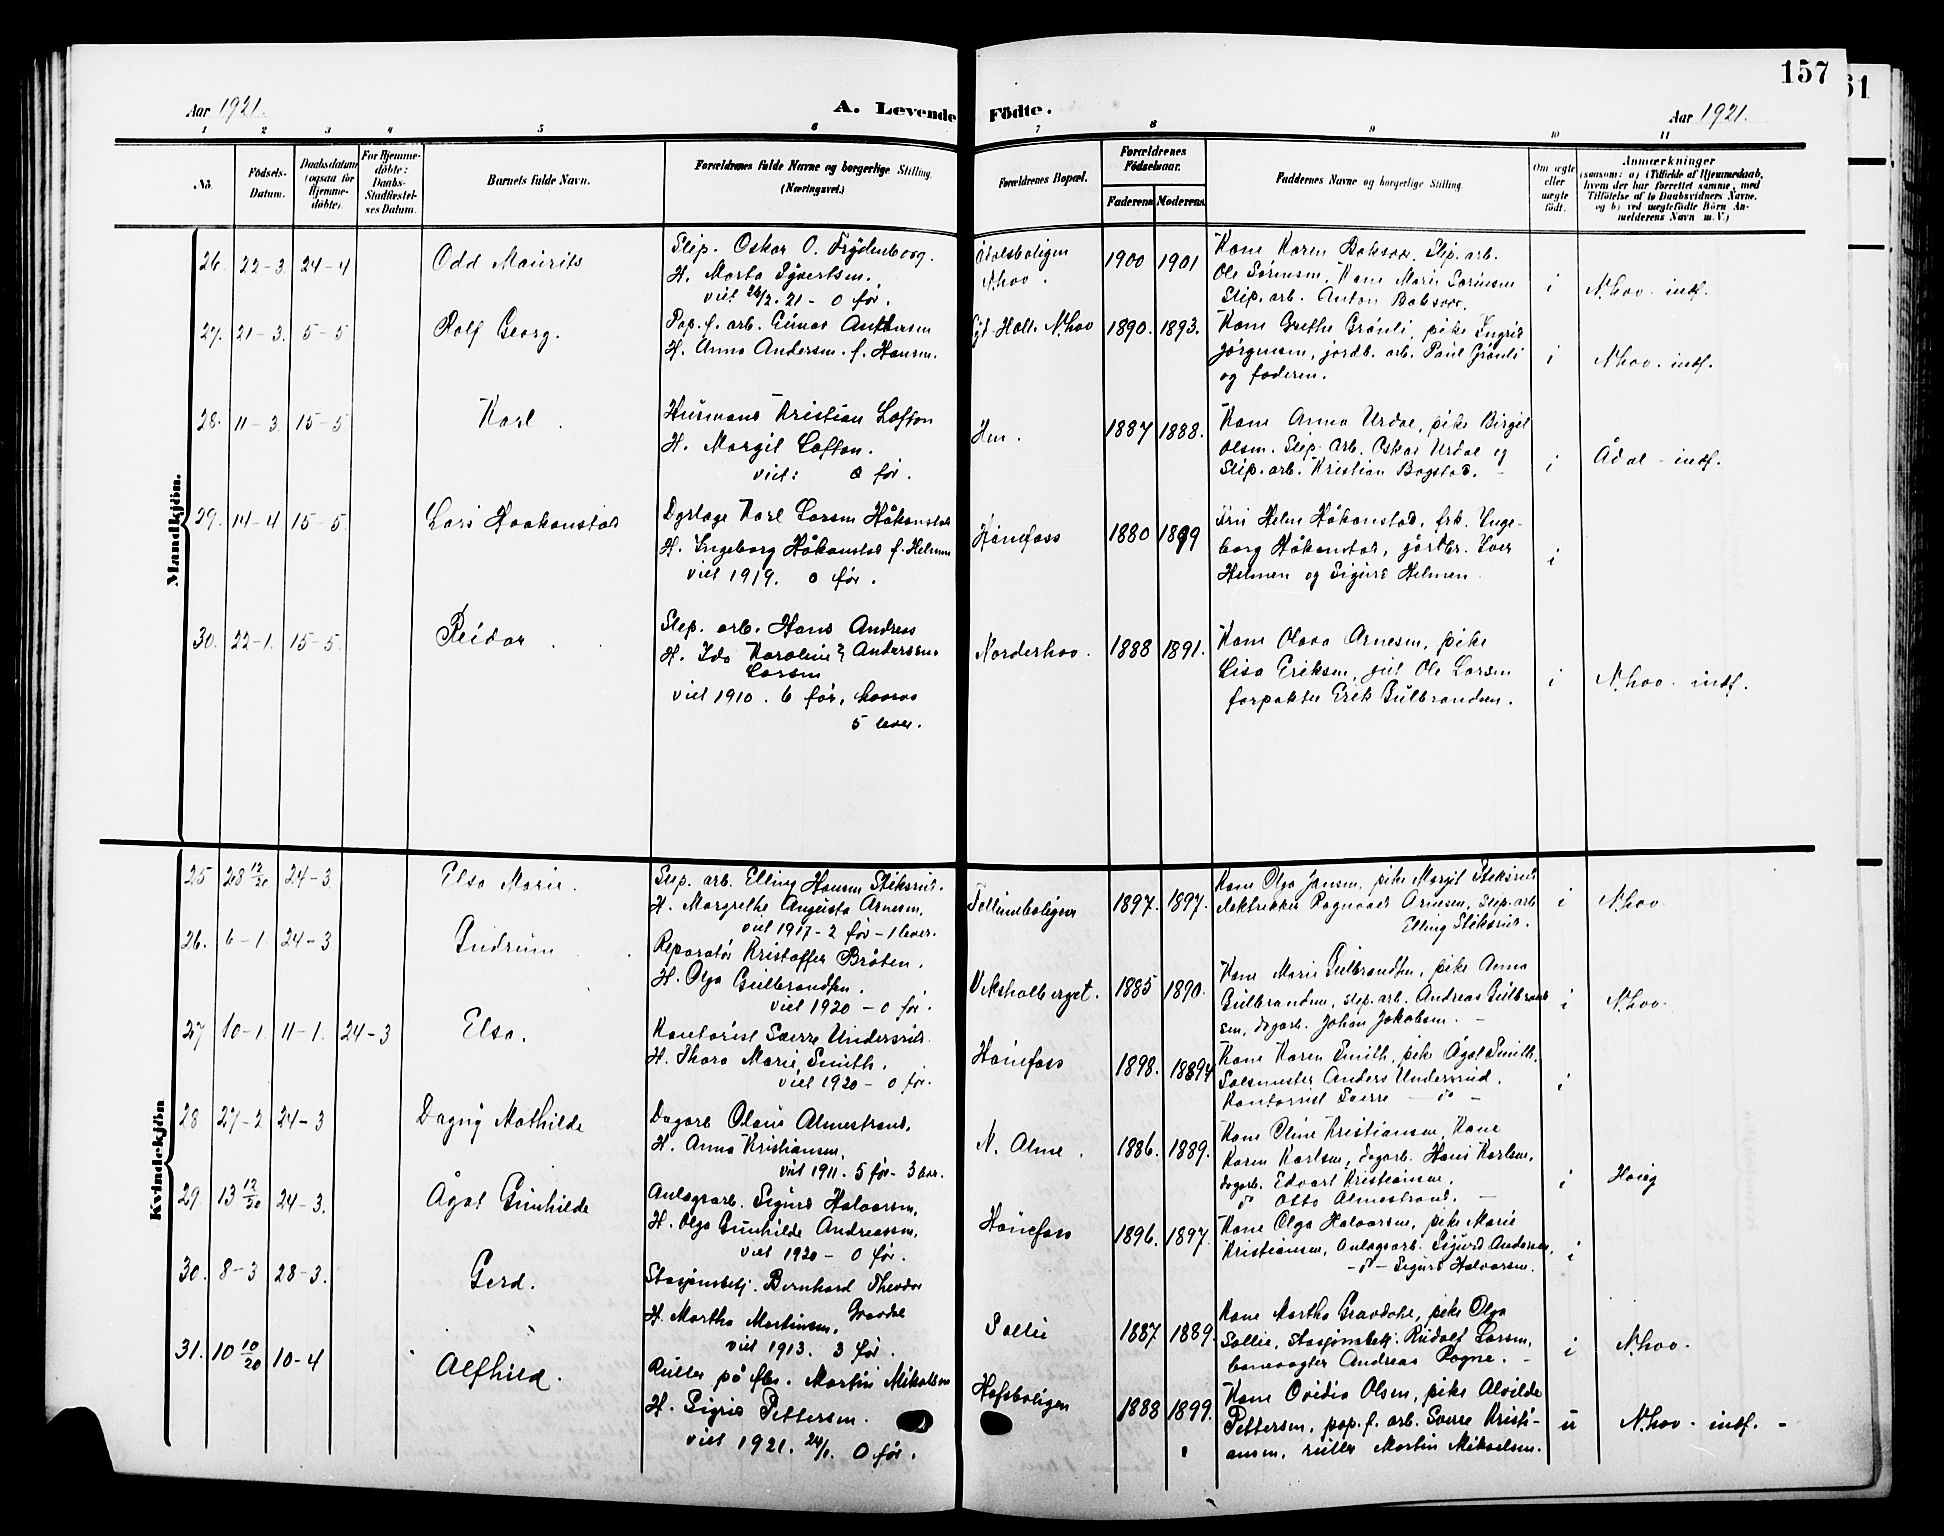 157
61
Aar 1921.
A. Levende Födte.
Aar 1921.
1 2 3 4 5 6 7 8 9 10 11
No.
Födsels-Datum.
Daabsdatum (ogsaa for Hjemmedöbte).
For Hjemmedöbte: Daabs-Stadfæstelses Datum.
Barnets fulde Navn.
Forældrenes fulde Navne og borgerlige Stilling.
(Næringsvei.)
Forældrenes Bopæl.
Forældrenes Födselsaar.
Faderens
Moderens
Faddernes Navne og borgerlige Stilling.
Om ægte eller uægte födt.
Anmærkninger
(saasom: a) i Tilfælde af Hjemmedaab,
hvem der har forrettet samme, med
Tilföielse af to Daabsvidners Navne,
og b) ved uægtefödte Börn An-
melderens Navn m. V.)
Mandkjön.
26. 22-3. 24-4 Odd Maurits
Slip. Oskar O. Frydenborg.
H. Marta Syvertsen.
viet 26/2. 21 - 0 før.
Ådalsboligen
N.hov.
1900 1901
Kone Karen Boksrør, Slip. arb.
Ole Sørensen, Kone Marie Sørensen
Slip. arb. Anton
i N.hov. indf.
27. 21-3. 5-5 Rolf Georg.
Pap. f. arb. Gunar Andersen
H. Anna Andersen. f. Hansen.
N.hov
1890. 1893.
Kone Grethe Grønli, pike Ingrid
Jørgensen, jordb. arb. Paul Grønli
og faderen.
i N.hov. indf.
28. 11-3. 15-5 Karl.
Kristian Lofton
H. Margit Lofton.
viet: 0 før.
Hen.
1887 1888.
Kone Anna Urdal, pike Birgit
Olsen. Slip. arb. Oskar Urdal og
Slip. arb. Kristian Bagstad. -
i Ådal - indf.
29. 14-4 15-5. Lars Haakonstad
Karl Larsen Håkonstad
H. Ingeborg Håkonstad f. Helmen
viet 1919. 0 før.
Hønefoss
1880 1899
Fru Helen Håkonstad, frk. Inge-
borg Håkonstad, Iver
Helmen og Sigurd Helmen.
i
30. 22-1. 15-5. Reidar.
Slip. arb. Hans Andreas
H. Ida Karoline Anderssen
Larsen
viet 1910. 6 før, hvorav
5 lever.
Norderhov.
1888 1891.
Kone Olava Arnesen, pike
Lisa Eriksen, gut Ole Larsen
forpakter Erik Gulbrandsen.
i N.hov. indf.
Kvindekjön
25 28 12/20 24-3. Elsa Marie.
Slip. arb. Elling Hansen Stiksrud.
H. Margrethe Augusta Arnesen.
viet 1917 - 2 før - 1 lever.
Follumboligen
1897. 1897.
Kone Olga Jansen, pike Margit Stiksrud
elektriker Ragnvald Arnesen, Slip. arb
Elling Stiksrud.
i N.hov.
26. 6-1. 24-3 Gudrun
Reparatør Kristoffer Bråten.
H. Olga Gulbrandsen.
viet 1920 - 0 før.
Veksholberget.
1885 1890.
Kone Marie Gulbrandsen, pike Anna
Gulbrandsen, slip. arb. Andreas Gulbrand-
sen, dagarb. Johan Jakobsen. -
i N.hov.
27 10-1. 11-1. 24-3 Elsa.
Kontorist Sverre Undersrud.
H. Thora Marie Smith.
viet 1920 - 0 før.
Hønefoss
1898. 1894
Kone Karen Smith, pike Ågot Smith.
Salsmester Anders Undersrud.
Kontorist Sverre - do -
i
28 27-2 24-3 Dagny Mathilde
Dagarb Olaus Almestrand.
H. Anna Kristiansen.
viet 1911. 5 før - 3 lev.
N. Alme.
1886. 1889.
Kone Oline Kristiansen, Kone
Karen Karlsen, dagarb. Hans Karlsen,
dagarb. Edvart Kristiansen.
do Otto Almestrand. -
i Haug
29 13 12/20 24-3. Ågot Gunhilde
Anlagsarb. Sigurd Halvorsen.
H. Olga Gunhilde Andreassen.
viet 1920 - 0 før.
Hønefoss
1896. 1897.
Kone Olga Halvorsen, pike Marie
Kristiansen, Anlagsarb. Sigurd Andersen,
- do - Sigurd Halvorsen.
i
30. 8-3 28-3. Gerd.
Stasjonsbetj. Bernhard Theodor
Gravdal
H. Martha Martinsen.
viet 1913. 3 før.
Sollie
1887 1889.
Kone Martha Gravdahl, pike Olga
Sollie, Stasjonsbetj. Rudolf Larsen,
banevogter Andreas Rogne. -
i N.hov.
31. 10 10/20 10-4 Alfhild.
Ruller på fbr. Martin Mikalsen
H. Sigrid Pettersen.
viet 1921. 24/1. 0 før.
Hofsboligen
1888 1899.
Kone Ovidia Olsen, pike Alvilde
Pettersen, pap. f. arb. Sverre Kristi-
ansen, ruller Martin Mikaelsen.
u N.hov. indf. -